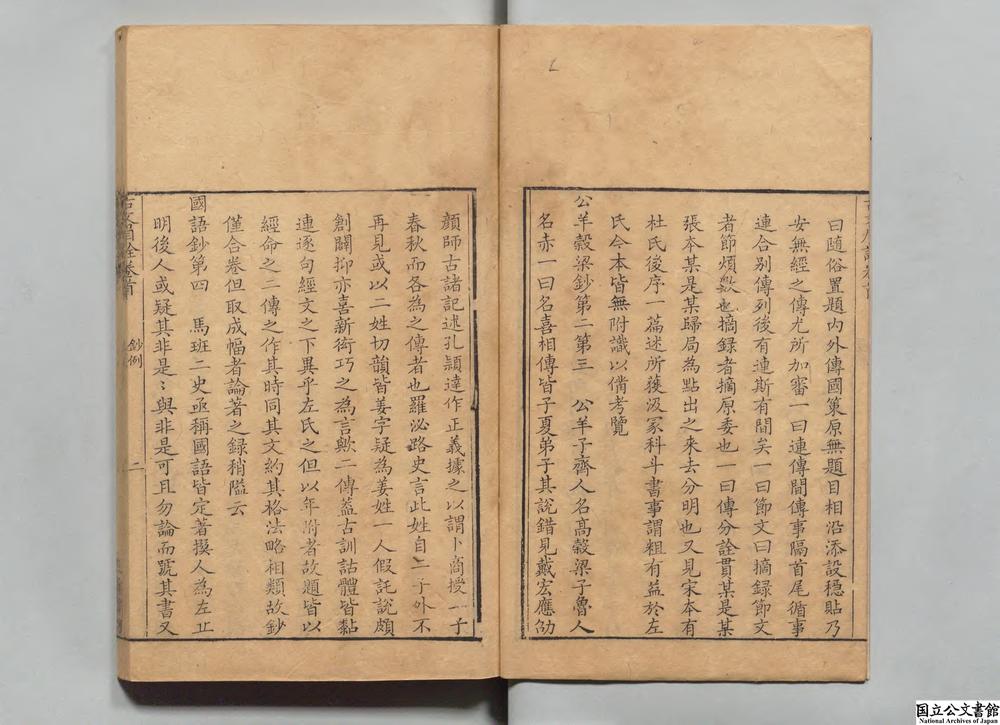 曰隨俗置題內外傳國策原無題目相沿添設穩貼乃
安無經之傳尤所加審一曰連傳間傳事隔首尾循事
連合別傳列後有連斯有間矣一曰節文曰摘録節文
者節煩數也摘録者摘原委也一曰傳分詮貫某是某
張本某是某歸局為點出之来去分明也又見宋本有
杜氏後序一篇述所獲汲冢科斗書事謂粗有益於左
氏今本皆無附識以備考覽
公羊穀梁鈔第二第三　公羊子齊人名高穀梁子魯人
名赤一曰名喜相傳皆子夏弟子其說錯見戴宏應劭
顔師古諸記述孔頴達作正義據之以謂卜商授二子
春秋而各為之傳者也羅泌路史言此姓自二子外不
再見或以二姓切韻皆姜字疑為姜姓一人假託說頗
創闢抑亦喜新術巧之為言歟二傳葢古訓詁體皆黏
連逐句經文之下異乎左氏之但以年附者故題皆以
經命之二傳之作其時同其文約其格法略相類故鈔
僅合卷但取成幅者論著之録稍隘云
國語鈔第四　馬班二史亟稱國語皆定著撰人為左丘
明後人或疑其非是〻與非是可且勿論而號其書又
古文眉詮卷首
鈔例
二
国立公文書館
National Archives of Japan